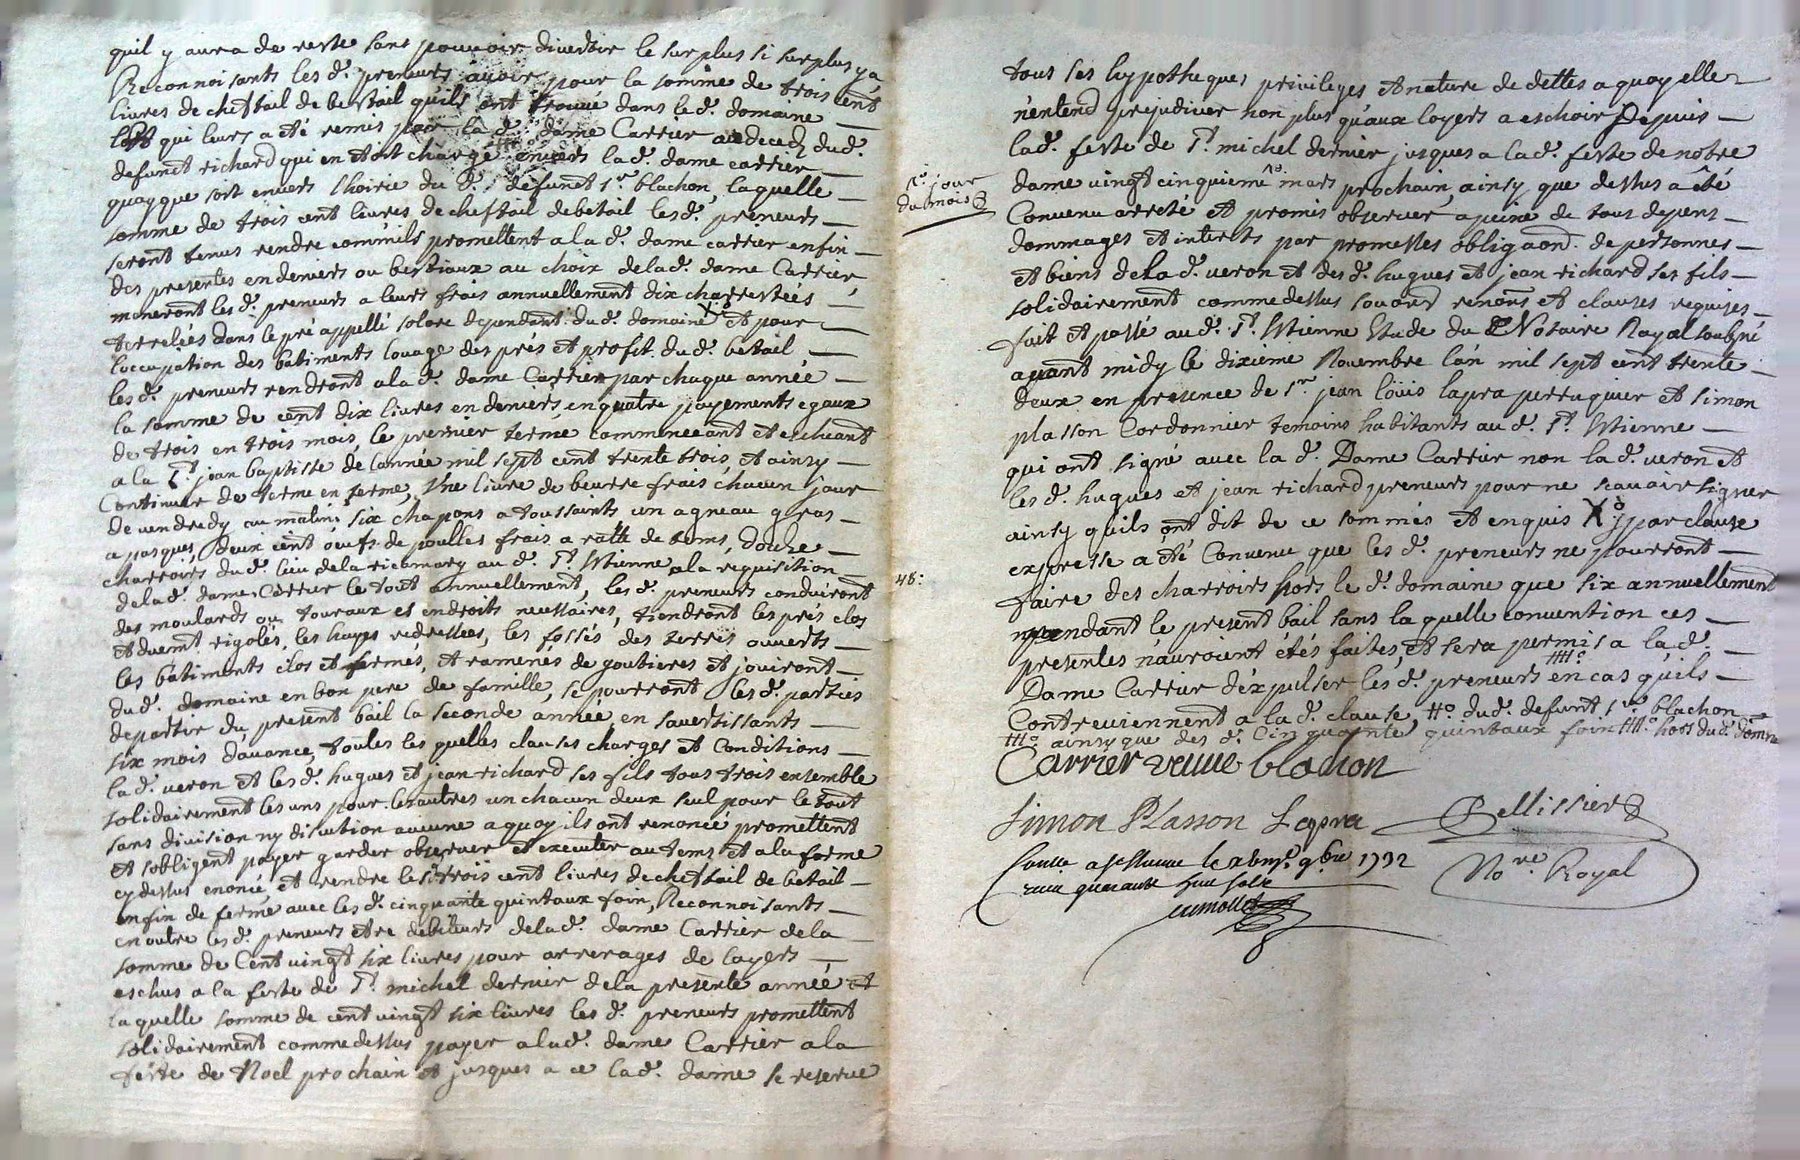 quil y aura de reste sans pouvoir divertir le surplus si surplus y a
Reconnoisants les d.t preneurs avoir pour la somme de trois cent
livres de cheftail de bestail quils ont trouvé dans le d. domaine
qui leurs a été remis par la d.e dame Carrier au deced du d.
defunct richard qui en étoit chargé envers la d. dame carrier
quoyque soit envers lhoirie du d. defunct s.r blachon, laquelle
somme de trois cent livres de cheftail de betail les d. preneurs
seront tenus rendre comm'ils promettent a la d. dame carrier enfin
des presentes en deniers ou bestiaux au choix de la d. dame Carrier,
meneront les d. preneurs a leurs frais annuellement dix charrestées
dans le pré appellé solore dependant du d. domaine et pour
loccupation des batiments louage des prés et profit du d. betail
les d. preneurs rendront a la d. dame Carrier par chaque année
la somme de cent dix livres en deniers en quatre payements egaux
de trois en trois mois le premier terme commenceant et escheant
a la S.t jean baptiste de lannée mil sept cent trente trois, et ainsy
Continuer de terme en terme, Une livre de beurre frais chacun jour
de vendredy au matin, six chapons a toussaints un agneau gras
a pasques, deux cent oeufs de poulles frais a ratte de tems, douze
charroirs du d. lieu de la ricamary au d. S.t Etienne a la requisition
de la d. dame Carrier le tout annuellement, les d. preneurs conduiront
des moulards ou toureaux es endroits necessaires, tiendront les prés clos
et duemt rigolés, les hayes redressées, les fossés des terres ouverts
les bâtiments clos et fermés, et ramenés de goutieres et jouiront
du d. domaine en bon pere de famille, se pourront les d. parties
departir du present bail la seconde année en savertissants
six mois davance, toutes les quelles clauses charges et Conditions
la d. veron et les d. hugues et jean richard ses fils tous trois ensemble
solidairement les uns pour les autres un chacun deux seul pour le tout
sans division ny discution aucune a quoy ils ont renoncé promettent
et sobligent payer garder observer et executer au tems et a la forme
cy dessus enoncée et rendre les d. trois cent livres de cheftail de betail
en fin de ferme avec les d. cinquante quintaux foin, Reconnoisants
en outre les d. preneurs etre debiteurs de la d. dame Carrier de la
somme de Cent vingt six livres pour arrerages de loyers
eschus a la feste de S.t michel dernier de la presente année et
laquelle somme de cent vingt six livres les d. preneurs promettent
solidairement comme dessus payer a la d. dame Carrier a la
feste de Noel prochain et jusques a ce la d. dame se reserve
tous ses hypotheques privileges et nature de dettes a quoy elle
n'entend prejudicier non plus qu'aux loyers a eschoir Depuis
la d. feste de S.t michel dernier jusques a la d. feste de notre
dame vingt cinquieme mars prochain, ainsy que dessus a été
jour
du mois
Convenu arreté et promis observer a peine de tous depens
dommages et interets par promesses obligaon.s de personnes
et biens de la d. veron et des d. hugues et jean richard ses fils
solidairement comme dessus renons et clauses requises
fait et passé au d. S.t Etienne Etude du Notaire Royal soubné
avant midy le dixieme Novembre lan mil sept cent trente
deux en presence de s.r jean loüis lapra perruquier et simon
plasson Cordonnier temoins habitants au d. S.t Etienne
qui ont signé avec la d. Dame Carrier non la d. veron et
les d. hugues et jean richard preneurs pour ne scavoir signer
ainsy quils ont dit de ce sommés et enquis X.o par clause
expresse a été Convenu que les d. preneurs ne pourront
48:
faire des charroirs hors le d. domaine que six annuellement
pendant le present bail sans la quelle convention ces
presentes nauroient étés faites, et sera permis a la d.
Dame Carrier déxpulser les d. preneurs en cas qu'ils
Contreviennent a la d. clause, #o. du d. defunt s.r blachon
ainsy que des d. Cinquante quintaux foin hors du d. domne
Carrier veuve blachon
Simon Plasson Lapra Pellissier
No.re Royal
a St Etienne le 9.bre 1732
quarante huit sols